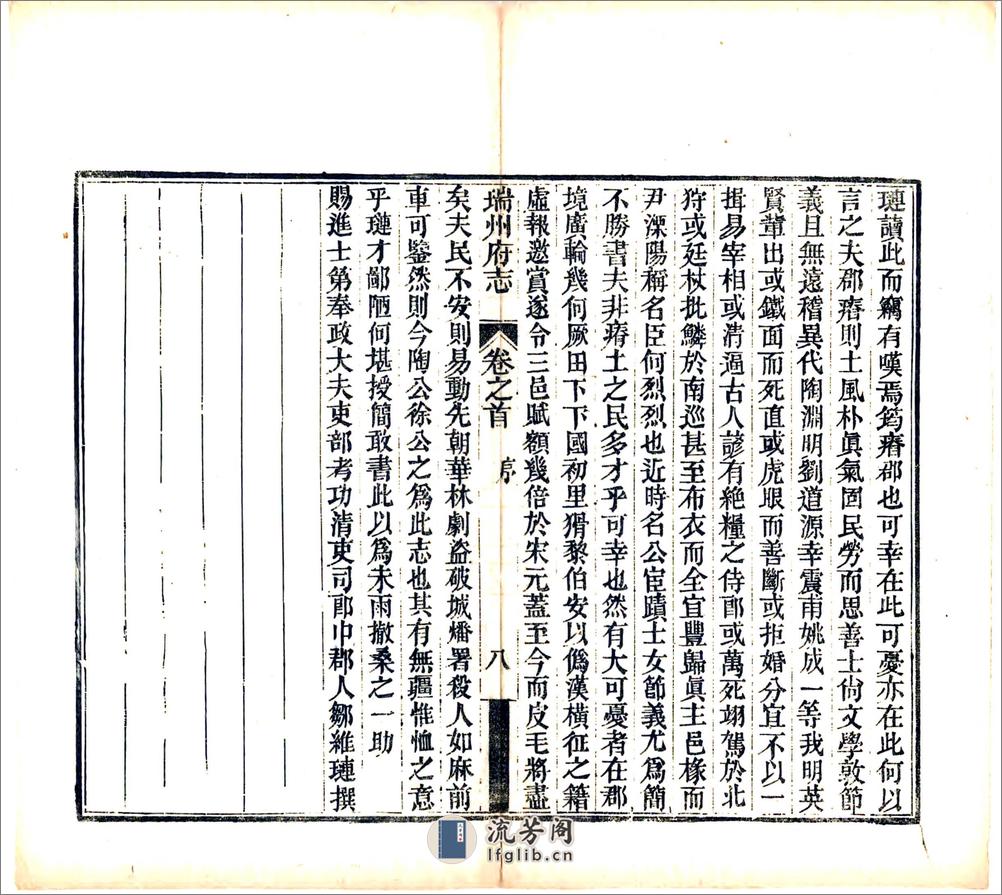 璉讀此而竊有嘆焉筠瘠郡也可幸在此可憂亦在此何以
言之夫郡瘠則土風朴眞氣固民勞而思善士尙文學敦節
義且無遠稽異代陶淵明劉道源幸震甫姚成一等我明英
賢輩出或鐵面而死直或虎眼而善斷或拒婚分宜不以一
揖易宰相或淸逼古人諺有絶糧之侍郎或萬死翊駕於北
狩或廷杖批鱗於南巡甚至布衣而全宜豐歸眞主邑椽而
尹溧陽稱名臣何烈烈也近時名公宦蹟士女節義尤爲簡
不勝書夫非瘠土之民多才乎可幸也然有大可憂者在郡
境廣輪幾何厥田下下國初里猾黎伯安以僞漢橫征之籍
虛報邀賞遂令三邑賦額幾倍於宋元蓋至今而皮毛將盡
瑞州府志 卷之首 序 八
矣夫民不安則易動先朝華林劇盜破城燔署殺人如麻前
車可鑒然則今陶公徐公之爲此志也其有無疆惟恤之意
乎璉才鄙陋何堪授簡敢書此以爲未雨撤桑之一助
賜進士第奉政大夫吏部考功淸吏司郎中郡人鄒維璉撰
流芳阁
lfglib.cn